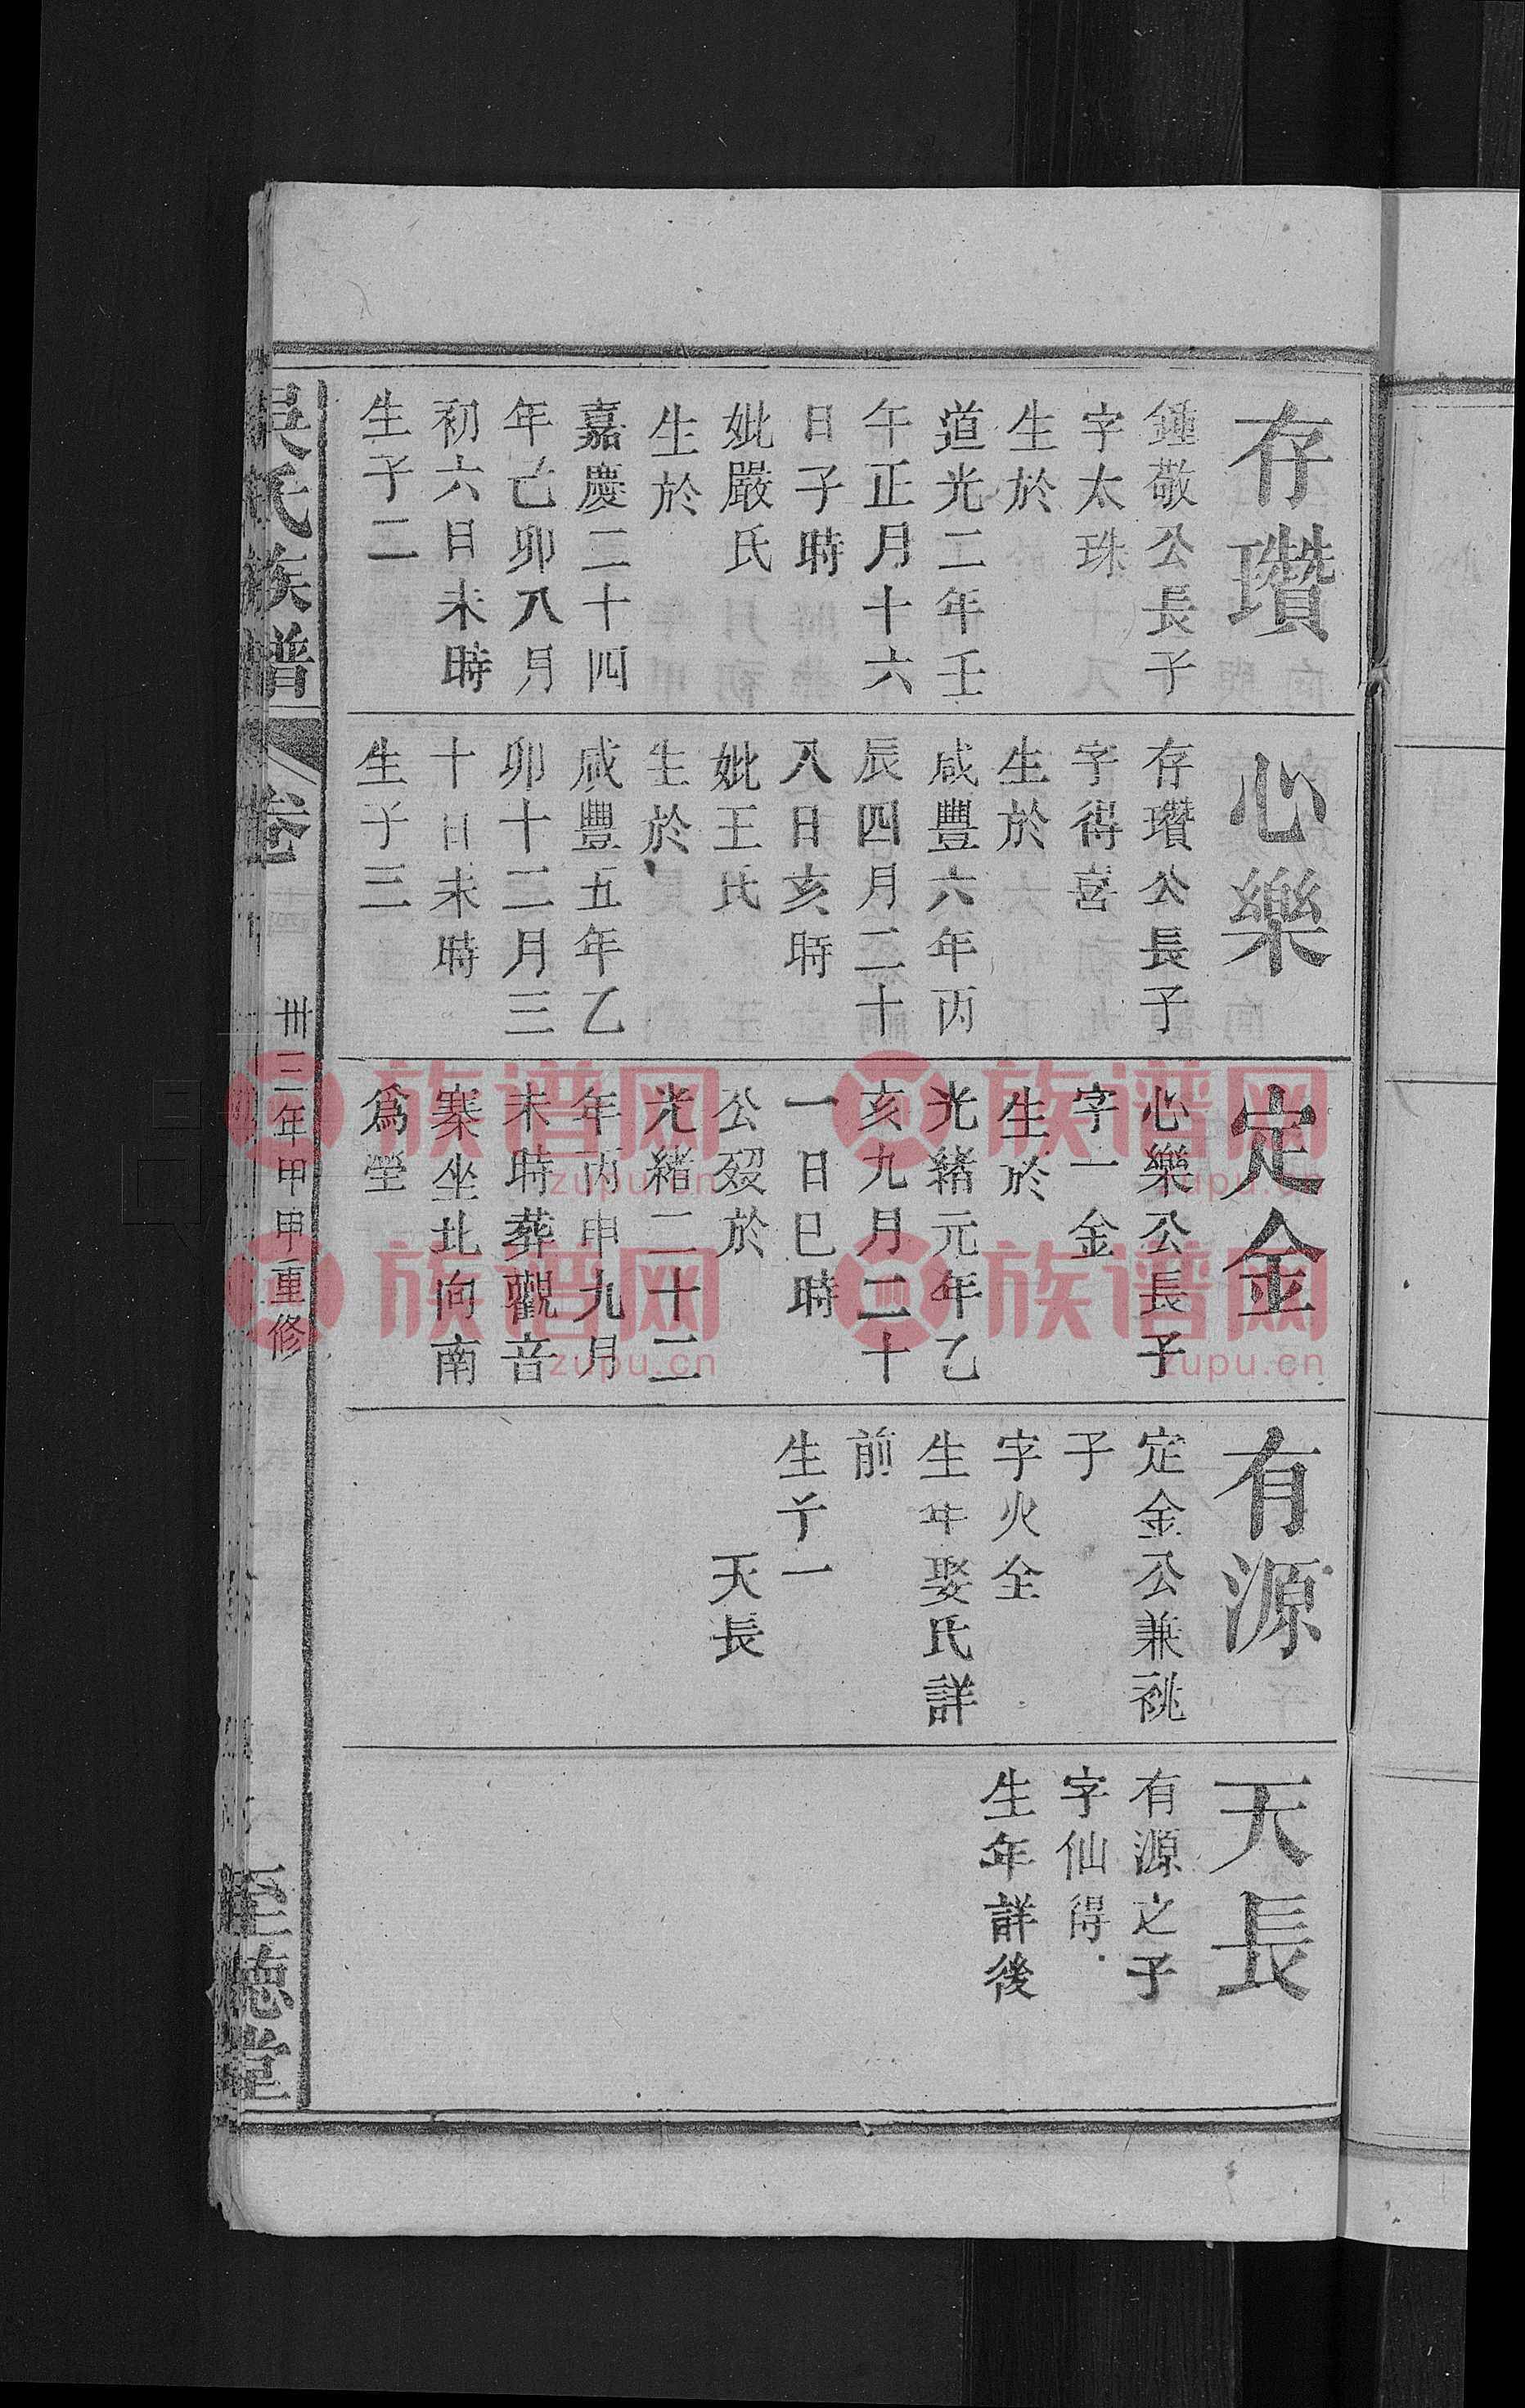 存瓚
鍾敬公長子
字太珠
生於
道光二年壬
午正月十六
日子時
妣嚴氏
生於
嘉慶二十四
年己卯八月
初六日未時
生子二
心樂
存瓚公長子
字得喜
生於
咸豐六年丙
辰四月二十
八日亥時
妣王氏
生於
咸豐五年乙
卯十二月三
十日未時
生子三
定金
心樂公長子
字一金
生於
光緒元年乙
亥九月二十
一日巳時
公歿於
光緒二十二
年丙申九月
未時葬觀音
寨坐北向南
爲塋
有源
定金公兼祧
子
字火全
生年娶氏詳
前
生子一
天長
天長
有源之子
字仙得
生年詳後
吳氏族譜
卷
卅三年甲申重修
至德堂
族谱网
zupu.cn
族谱网
zupu.cn
族谱网
zupu.cn
族谱网
zupu.cn